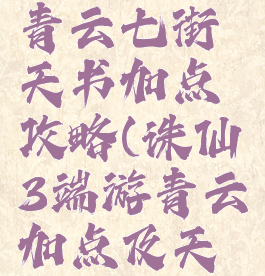 青云七街
天书加点
攻略(诛仙
3端游青云
加点及天